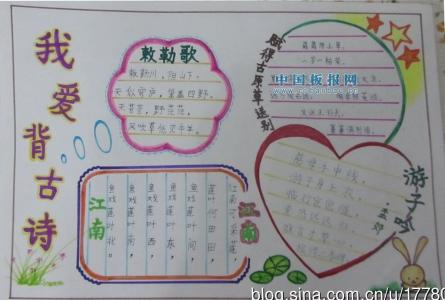 我爱背古诗
敕勒歌
敕勒川，阴山下。
天似穹庐，笼盖四野。
天苍苍，野茫茫。
风吹草低见牛羊。
赋得古原草送别
离离原上草，
一岁一枯荣。
中国板报网
又送王孙去，
萋萋满别情。
江南
江南可采莲，
莲叶何田田，
鱼戏莲叶间，
鱼戏莲叶东，
鱼戏莲叶西，
鱼戏莲叶南，
鱼戏莲叶北。
江南
游子吟
孟郊
慈母手中线，
游子身上衣。
临行密密缝，
blog.sina.com.cn/u/17780